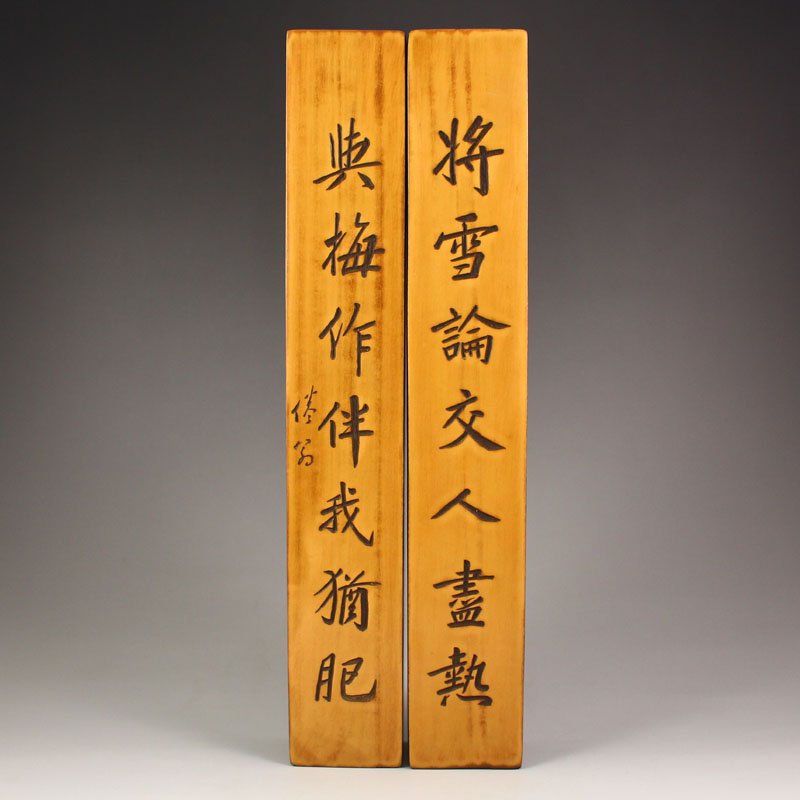 將雪論交人盡熱
與梅作伴我猶肥
倦翁